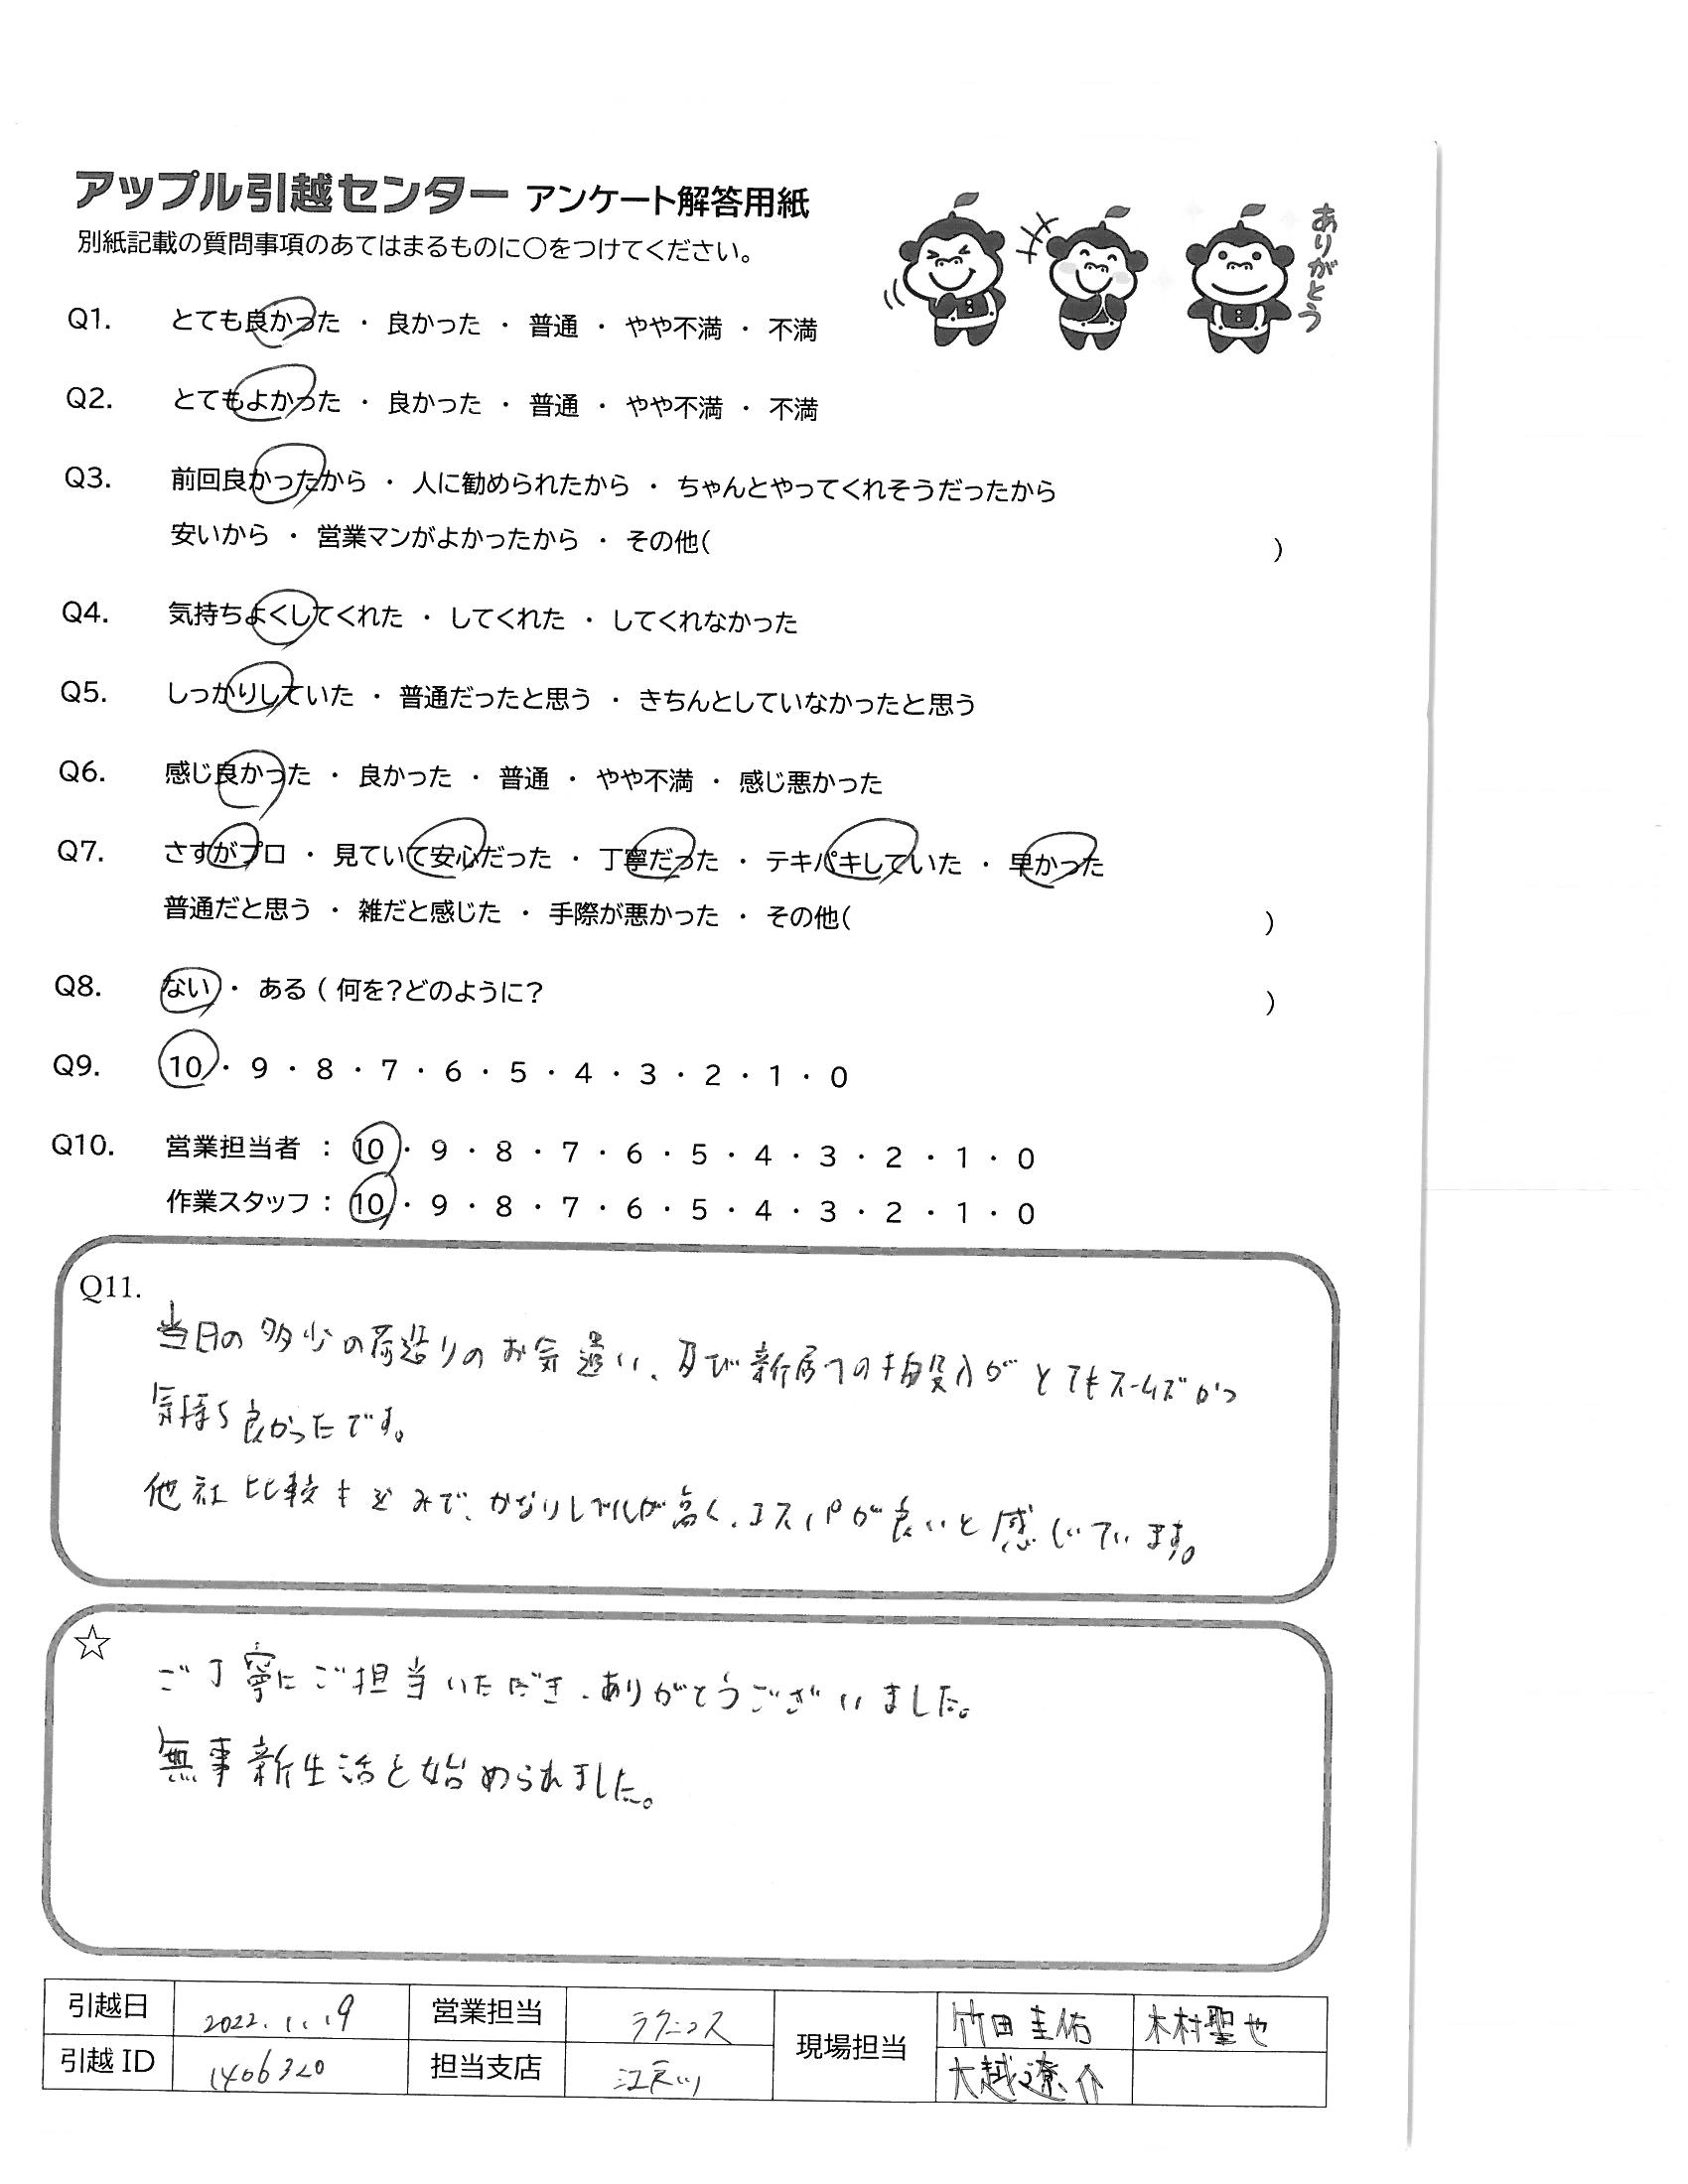 アップル引越センター アンケート解答用紙
ありがとう
別紙記載の質問事項のあてはまるものに○をつけてください。
Q1. とても良かった ・ 良かった ・ 普通 ・ やや不満 ・ 不満
Q2. とてもよかった ・ 良かった ・ 普通 ・ やや不満 ・ 不満
Q3. 前回良かったから ・ 人に勧められたから ・ ちゃんとやってくれそうだったから
安いから ・ 営業マンがよかったから ・ その他( )
Q4. 気持ちよくしてくれた ・ してくれた ・ してくれなかった
Q5. しっかりしていた ・ 普通だったと思う ・ きちんとしていなかったと思う
Q6. 感じ良かった ・ 良かった ・ 普通 ・ やや不満 ・ 感じ悪かった
Q7. さすがプロ ・ 見ていて安心だった ・ 丁寧だった ・ テキパキしていた ・ 早かった
普通だと思う ・ 雑だと感じた ・ 手際が悪かった ・ その他( )
Q8. ない ・ ある ( 何を?どのように? )
Q9. 10 ・ 9 ・ 8 ・ 7 ・ 6 ・ 5 ・ 4 ・ 3 ・ 2 ・ 1 ・ 0
Q10. 営業担当者 : 10 ・ 9 ・ 8 ・ 7 ・ 6 ・ 5 ・ 4 ・ 3 ・ 2 ・ 1 ・ 0
作業スタッフ : 10 ・ 9 ・ 8 ・ 7 ・ 6 ・ 5 ・ 4 ・ 3 ・ 2 ・ 1 ・ 0
Q11.
当日の多少の荷造りのお気遣い、及び新居への搬入がとてもスムーズかつ
気持ち良かったです。
他社比較も込みで、かなりレベルが高く、コスパが良いと感じています。
☆
ご丁寧にご担当いただき、ありがとうございました。
無事新生活を始められました。
引越日 2022.11.19 営業担当 現場担当 竹田圭佑 木村聖也
引越ID 1406320 担当支店 江戸川 大越遼介